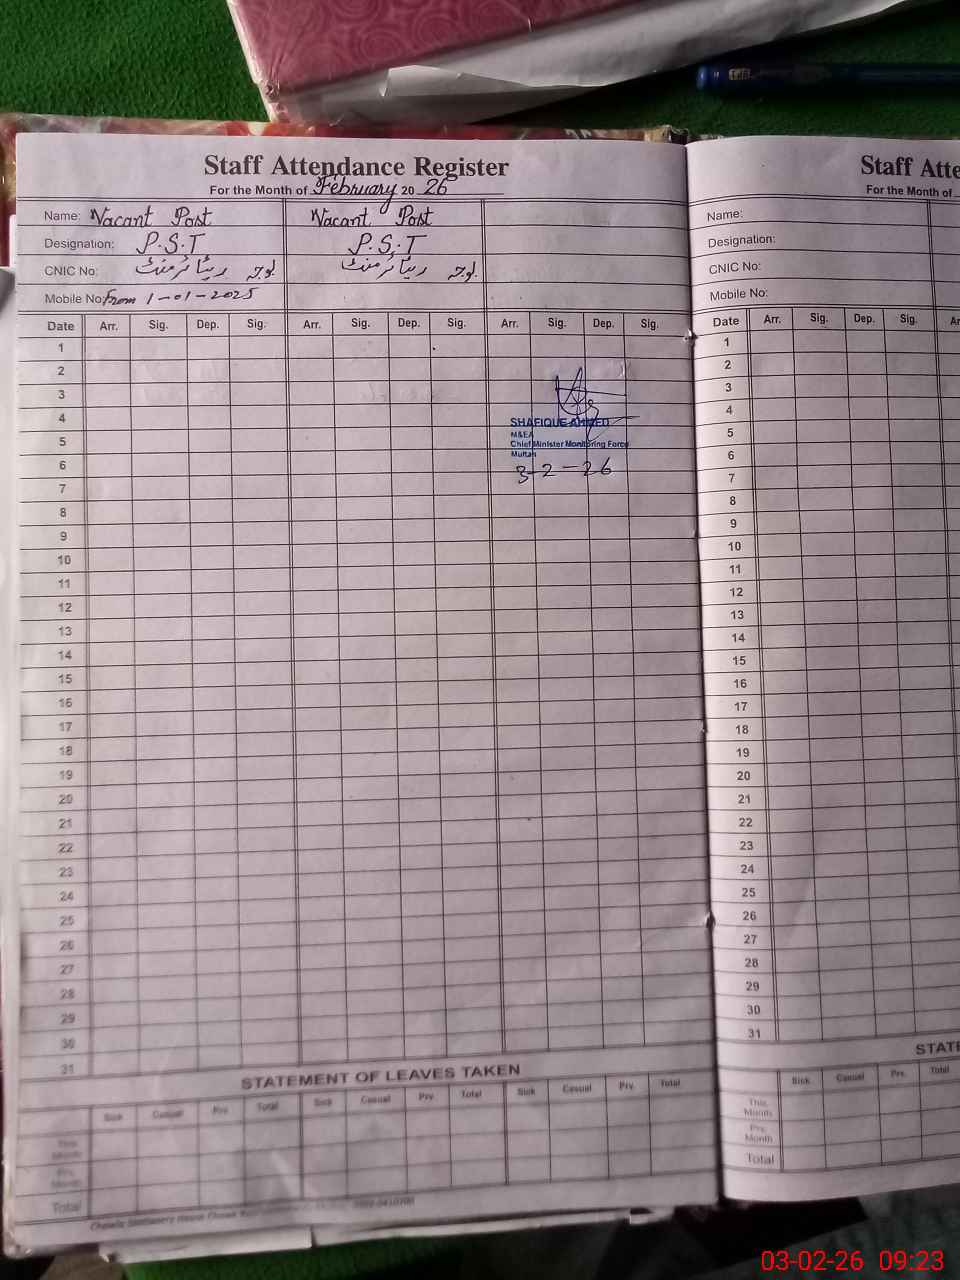 Staff Attendance Register
For the Month of February 20 26
Name: Vacant Post Vacant Post
Designation: P.S.T P.S.T
CNIC No: بوجہ ریٹائرمنٹ بوجہ ریٹائرمنٹ
Mobile No: From 1-01-2025
Date Arr. Sig. Dep. Sig. Arr. Sig. Dep. Sig. Arr. Sig. Dep. Sig.
1
2
3
4
5
6
7
8
9
10
11
12
13
14
15
16
17
18
19
20
21
22
23
24
25
26
27
28
29
30
31
SHAFIQUE AHMED
M&EA
Chief Minister Monitoring Force
Multan
3-2-26
STATEMENT OF LEAVES TAKEN
Sick Casual Prv. Total Sick Casual Prv. Total Sick Casual Prv. Total
This Month
Prv. Month
Total
Staff Atte
For the Month of
Name:
Designation:
CNIC No:
Mobile No:
Date Arr. Sig. Dep. Sig. Ar
1
2
3
4
5
6
7
8
9
10
11
12
13
14
15
16
17
18
19
20
21
22
23
24
25
26
27
28
29
30
31
STATE
Sick Casual Prv. Total
This Month
Prv. Month
Total
03-02-26 09:23